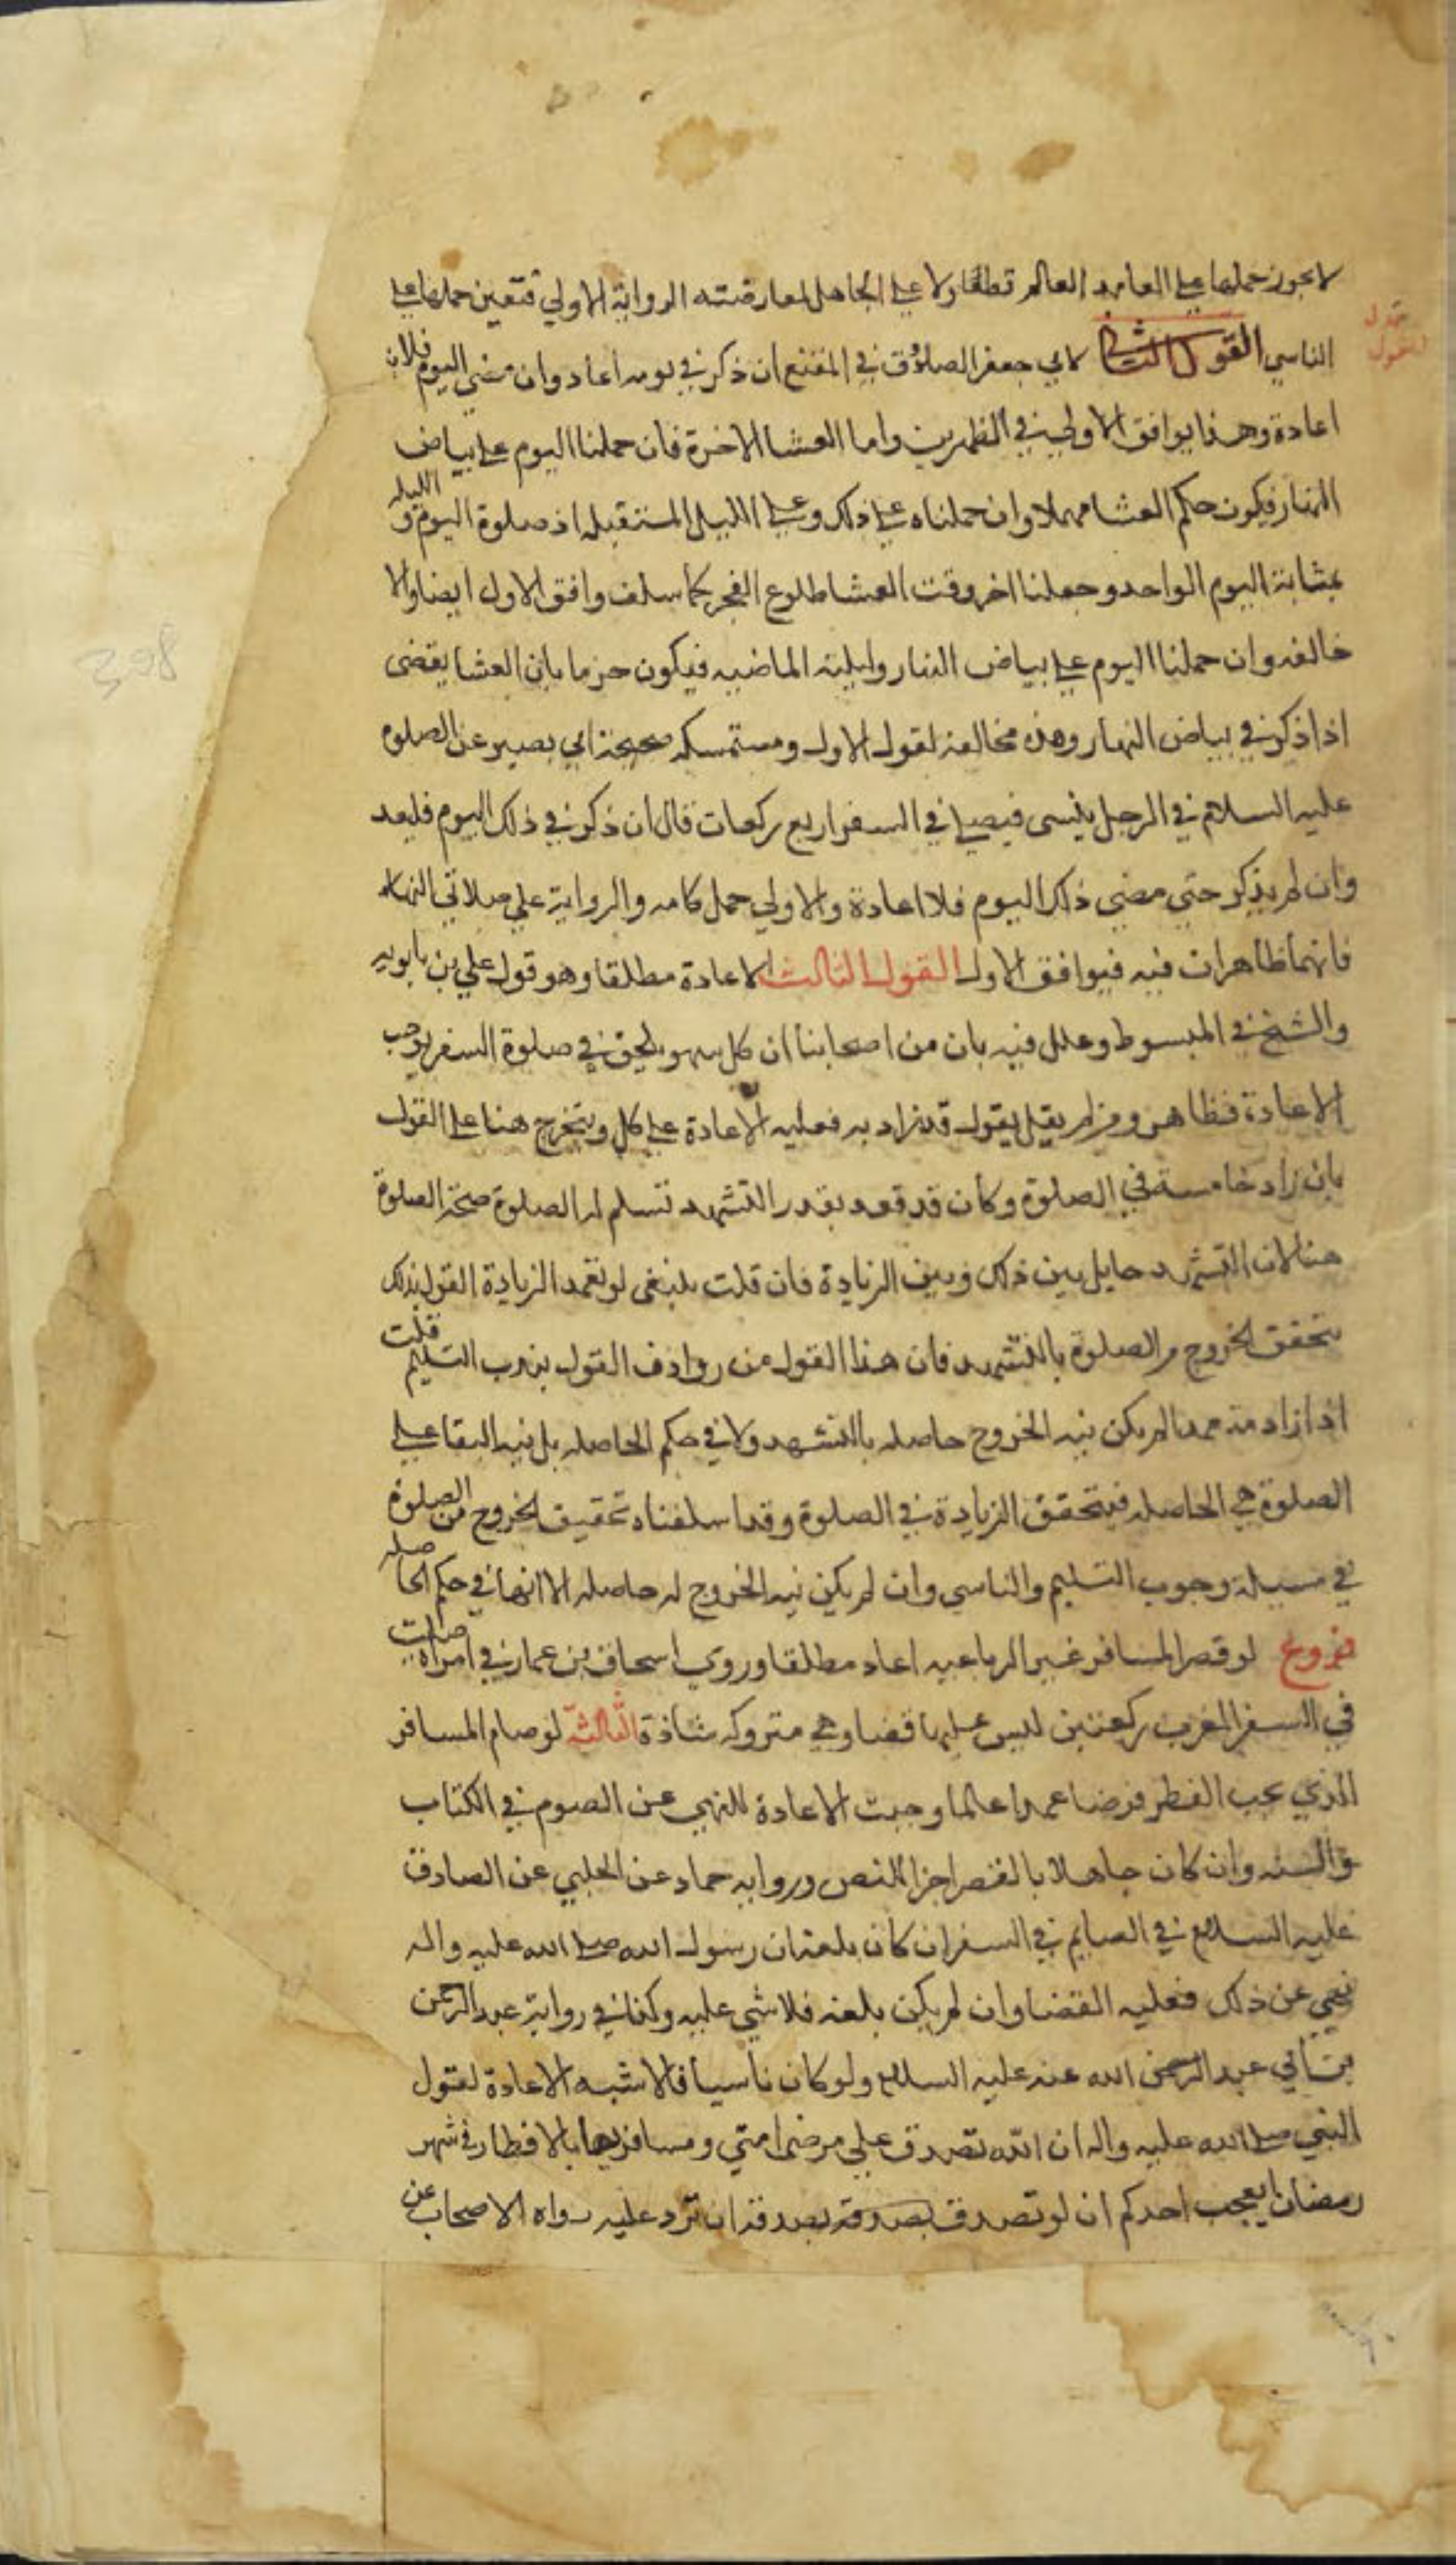 لا يجوز حملها على العامد العالم قطعا ولا على الجاهل لمعارضته الرواية الاولى فتعين حملها على
الناسي القول الثاني لابي جعفر الصدوق في المقنع ان ذكر في يومه اعاد وان مضى اليوم فلا
اعادة وهذا يوافق الاول في الظهرين واما العشا الاخرة فان حملنا اليوم على بياض
النهار فيكون حكم العشا مهملا وان حملناه على ذلك وعلى الليل المستقبله اذ صلوة اليوم و الليله
بمثابة اليوم الواحد وجعلنا اخر وقت العشا طلوع الفجر كما سلف وافق الاول ايضا والا
خالفه وان حملنا اليوم على بياض النهار وليلته الماضيه فيكون جزما بان العشا يقضى
اذا ذكر في بياض النهار وهذه مخالفة لقول الاول ومستمسكه صحيحة ابي بصير عن
عليه السلام في الرجل ينسى فيصلي في السفر اربع ركعات قال ان ذكر في ذلك اليوم فليعد
وان لم يذكر حتى مضى ذلك اليوم فلا اعادة والاولى حمل كلامه والرواية على صلاتي النهار
فانهما ظاهران فيه فيوافق الاول القول الثالث الاعادة مطلقا وهو قول علي بن بابويه
والشيخ في المبسوط وعلل فيه بان من اصحابنا ان كل سهو يلحق في صلوة السفر يوجب
الاعادة فظاهر ومن لم يقل يقول قد زاد به فعليه الاعادة على كل ويتخرج هنا على القول
بان زاد خامسة في الصلوة وكان قد قعد بقدر التشهد تسلم له الصلوة صحة الصلوة
هنا لان التشهد حايل بين ذلك وبين الزيادة فان قلت ينبغى لو تعمد الزيادة القول بذلك
بتحقق الخروج من الصلوة بالتشهد فان هذا القول من روادف القول بندب التسليم قلت
اذا زاد متعمدا لم يكن نيه الخروج حاصله بالتشهد ولا في حكم الحاصله بل نيه البقا على
الصلوة هي الحاصله فيتحقق الزيادة في الصلوة وقد اسلفناه تحقيق الخروج من الصلوة
في مسيلة وجوب التسليم والناسي وان لم يكن نيه الخروج له حاصله الا انها في حكم الحاصله
فروع لو قصر المسافر غير الرباعيه اعاد مطلقا وروى اسحاق بن عمار في امراة صلت
في السفر المغرب ركعتين ليس عليها قضا وهي متروكه شاذة الثالثه لو صام المسافر
الذي يجب الفطر فرضا عمدا عالما وجبت الاعادة للنهي عن الصوم في الكتاب
والسنه وان كان جاهلا بالقصر اجزا للنص وروايه حماد عن الحلبي عن الصادق
عليه السلام في الصايم في السفر ان كان بلغه ان رسول الله صلى الله عليه واله
نهى عن ذلك فعليه القضا وان لم يكن بلغه فلا شي عليه وكذا في رواية عبد الرحمن
بن ابي عبد الله عنه عليه السلام ولو كان ناسيا فالاشبه الاعادة لقول
النبي صلى الله عليه واله ان الله تصدق على مرضى امتي ومسافريها بالافطار في شهر
رمضان ايعجب احدكم ان لو تصدق بصدقة ان ترد عليه رواه الاصحاب عن